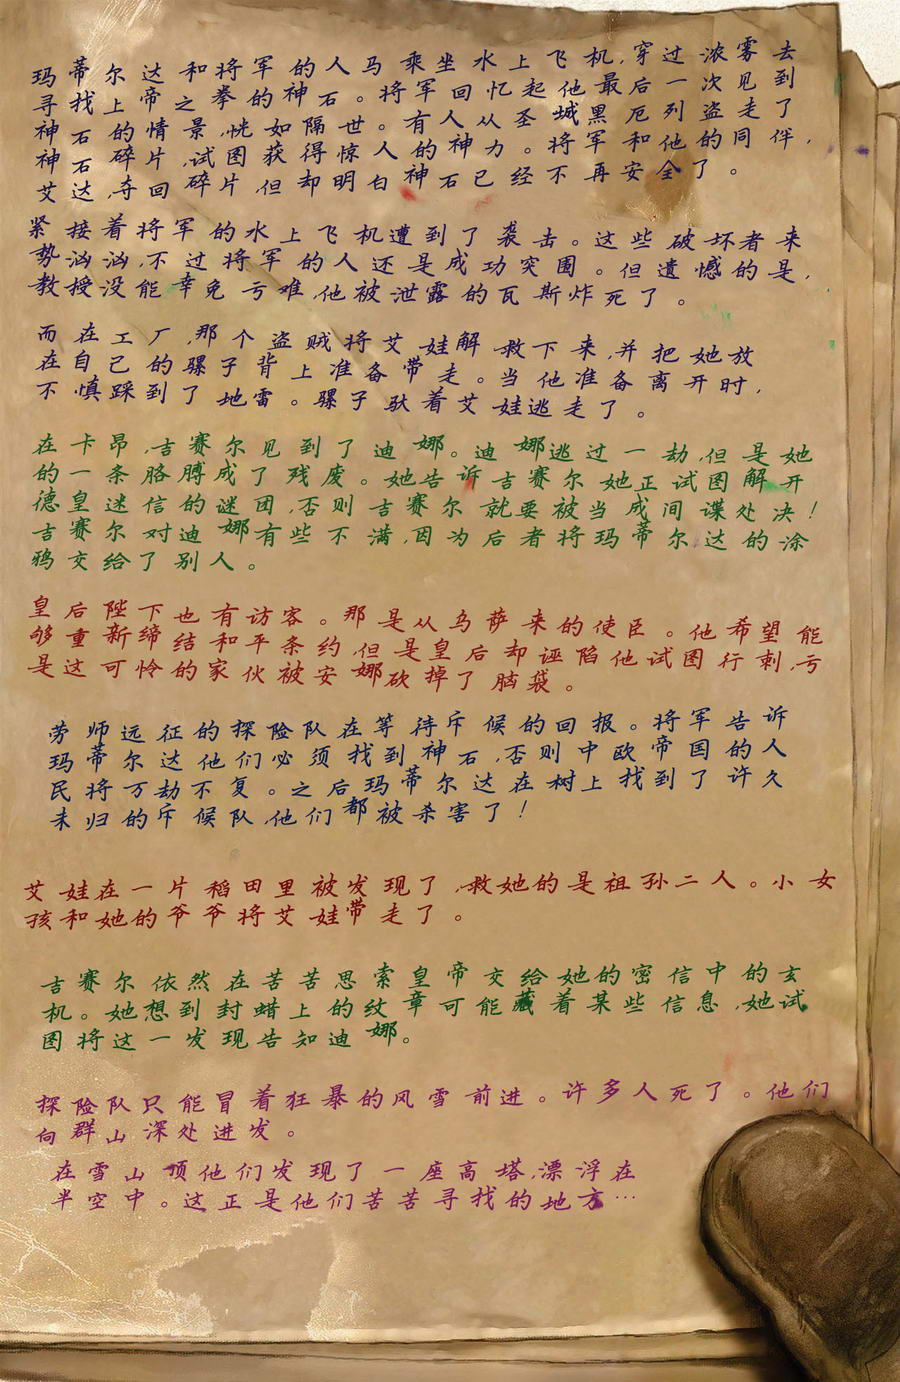 玛蒂尔达和将军的人马乘坐水上飞机,穿过浓雾去
寻找上帝之拳的神石。将军回忆起他最后一次见到
神石的情景,恍如隔世。有人从圣城黑厄列盗走了
神石碎片,试图获得惊人的神力。将军和他的同伴,
艾达,夺回碎片,但却明白神石已经不再安全了。
紧接着将军的水上飞机遭到了袭击。这些破坏者来
势汹汹,不过将军的人还是成功突围。但遗憾的是,
教授没能幸免于难,他被泄露的瓦斯炸死了。
而在工厂,那个盗贼将艾娃解救下来,并把她放
在自己的骡子背上准备带走。当他准备离开时,
不慎踩到了地雷。骡子驮着艾娃逃走了。
在卡昂,吉赛尔见到了迪娜。迪娜逃过一劫,但是她
的一条胳膊成了残废。她告诉吉赛尔她正试图解开
德皇迷信的谜团,否则吉赛尔就要被当成间谍处决!
吉赛尔对迪娜有些不满,因为后者将玛蒂尔达的涂
鸦交给了别人。
皇后陛下也有访客。那是从乌萨来的使臣。他希望能
够重新缔结和平条约,但是皇后却诬陷他试图行刺,于
是这可怜的家伙被安娜砍掉了脑袋。
劳师远征的探险队在等待斥候的回报。将军告诉
玛蒂尔达他们必须找到神石,否则中欧帝国的人
民将万劫不复。之后玛蒂尔达在树上找到了许久
未归的斥候队,他们都被杀害了!
艾娃在一片稻田里被发现了,救她的是祖孙二人。小女
孩和她的爷爷将艾娃带走了。
吉赛尔依然在苦苦思索皇帝交给她的密信中的玄
机。她想到封蜡上的纹章可能藏着某些信息,她试
图将这一发现告知迪娜。
探险队只能冒着狂暴的风雪前进。许多人死了。他们
向群山深处进发。
在雪山顶他们发现了一座高塔,漂浮在
半空中。这正是他们苦苦寻找的地方…